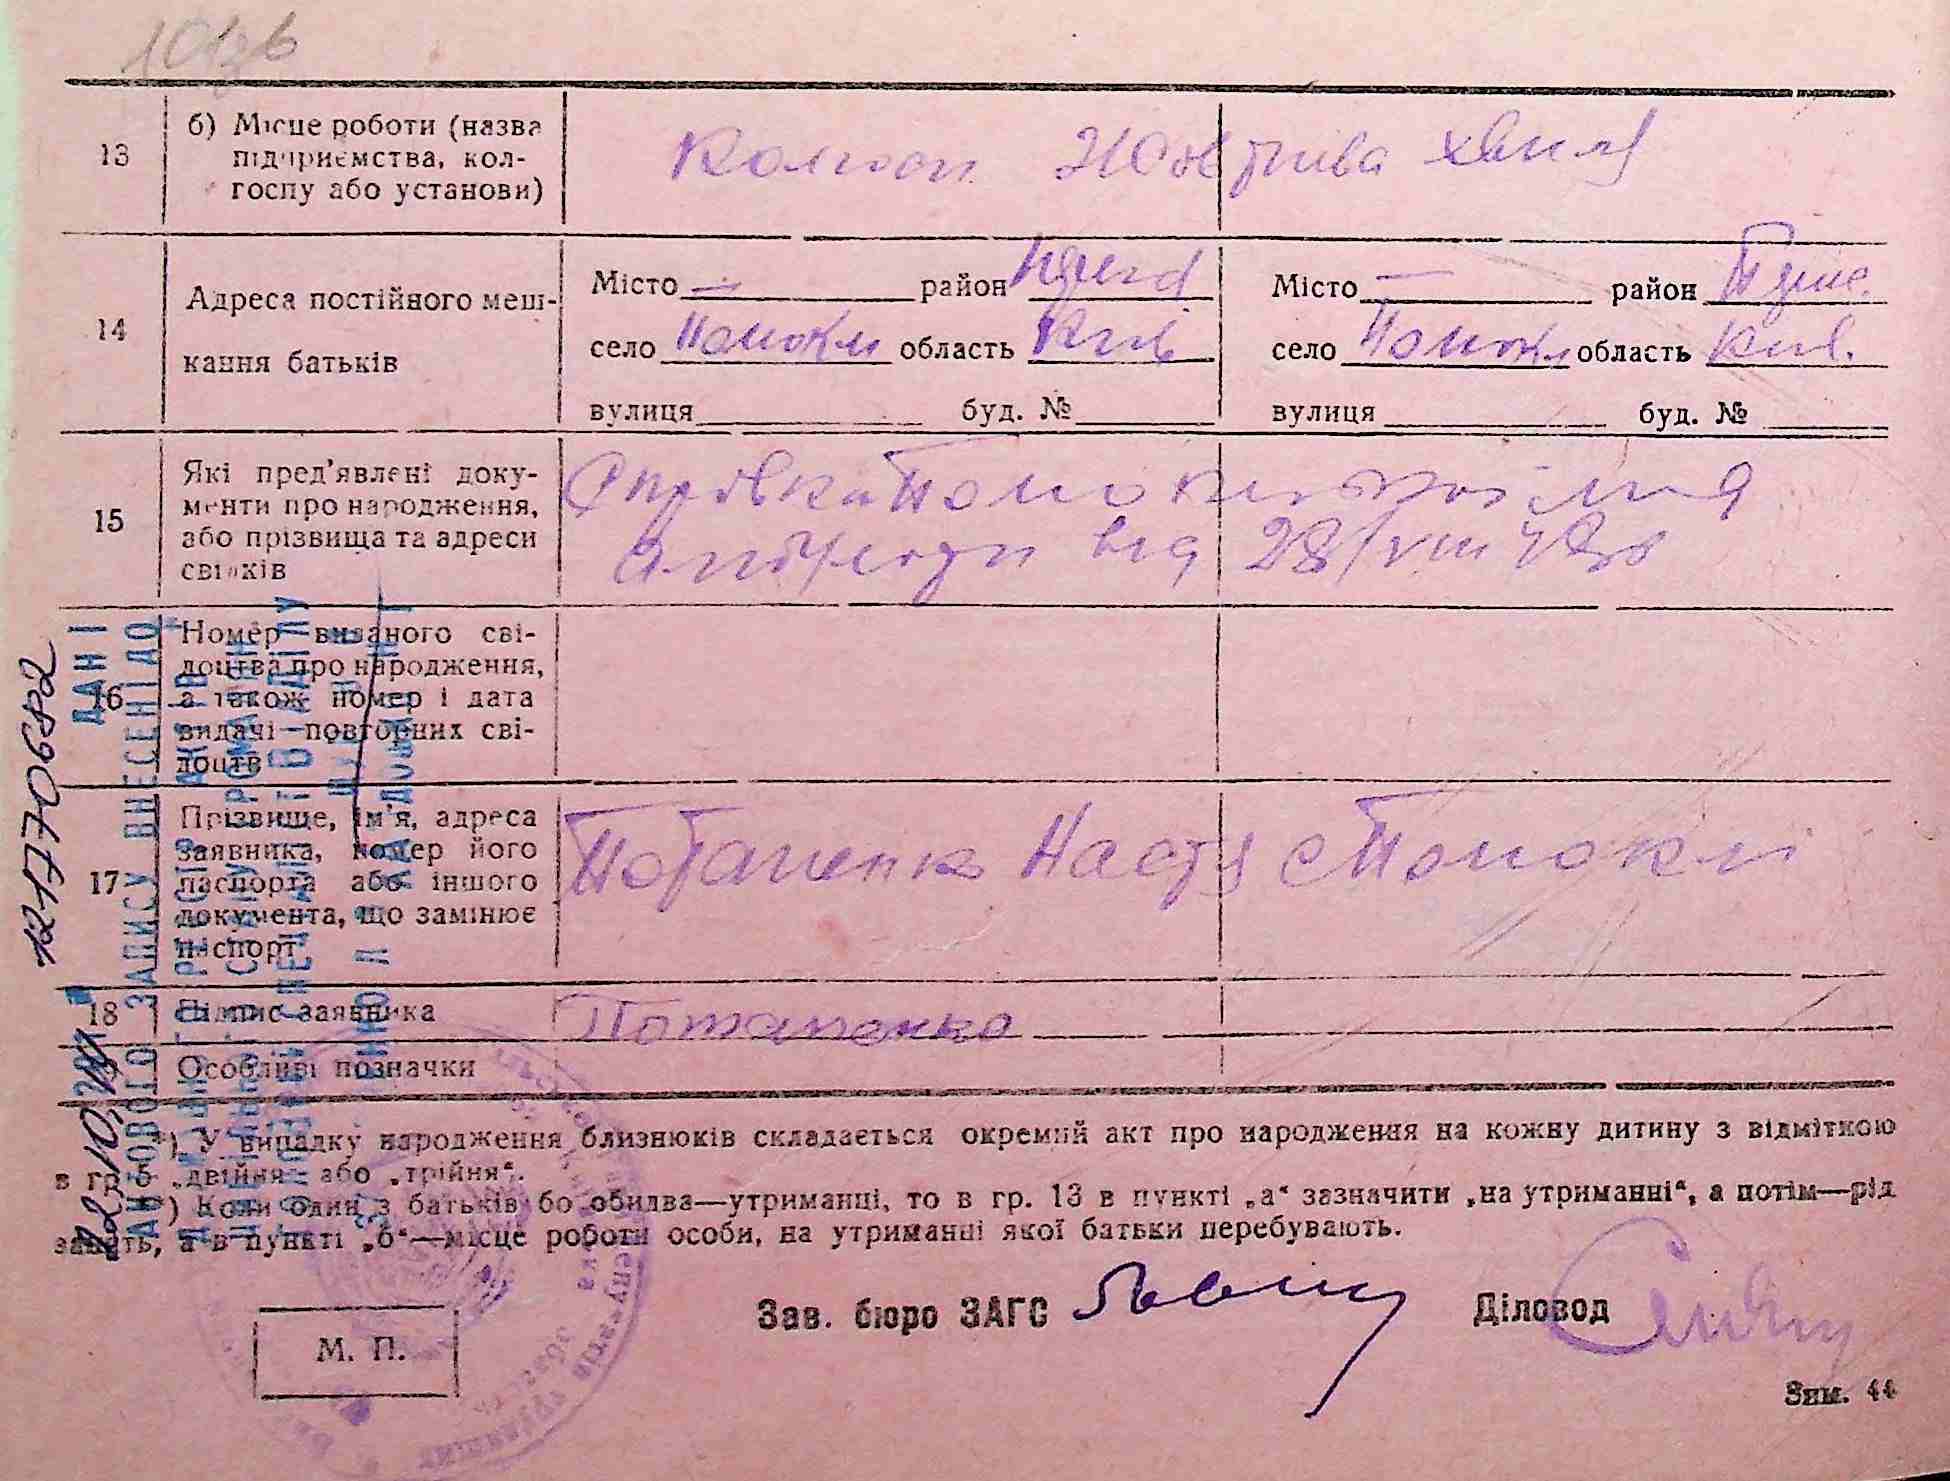 13
б) Місце роботи (назва
підприємства, кол-
госпу або установи)
Колгосп Жовтнева хвиля
14
Адреса постійного меш-
кання батьків
Місто — район
село Помокли область Київ
вулиця буд. №
Місто — район
село Помокл область Київ.
вулиця буд. №
15
Які пред'явлені доку-
менти про народження,
або прізвища та адреси
свідків
Справка Помоклівської
від 28/VIII 48р
16
Номер виданого сві-
доцтва про народження,
а також номер і дата
видачі повторних сві-
доцтв
17
Прізвище, ім'я, адреса
заявника, номер його
паспорта або іншого
документа, що замінює
паспорт
Потапенко Настя с Помоклі
18
Підпис заявника
Потапенко
Особливі позначки
*) У випадку народження близнюків складається окремий акт про народження на кожну дитину з відміткою
в гр. 5 „двійня“ або „трійня“.
*) Коли один з батьків бо обидва—утриманці, то в гр. 13 в пункті „а“ зазначити „на утриманні“, а потім—рід
занять, а в пункті „б“—місце роботи особи, на утриманні якої батьки перебувають.
М. П.
Зав. бюро ЗАГС
Діловод
Зим. 44
1217770682
ДАНІ
АКТОВОГО ЗАПИСУ ВНЕСЕНІ ДО